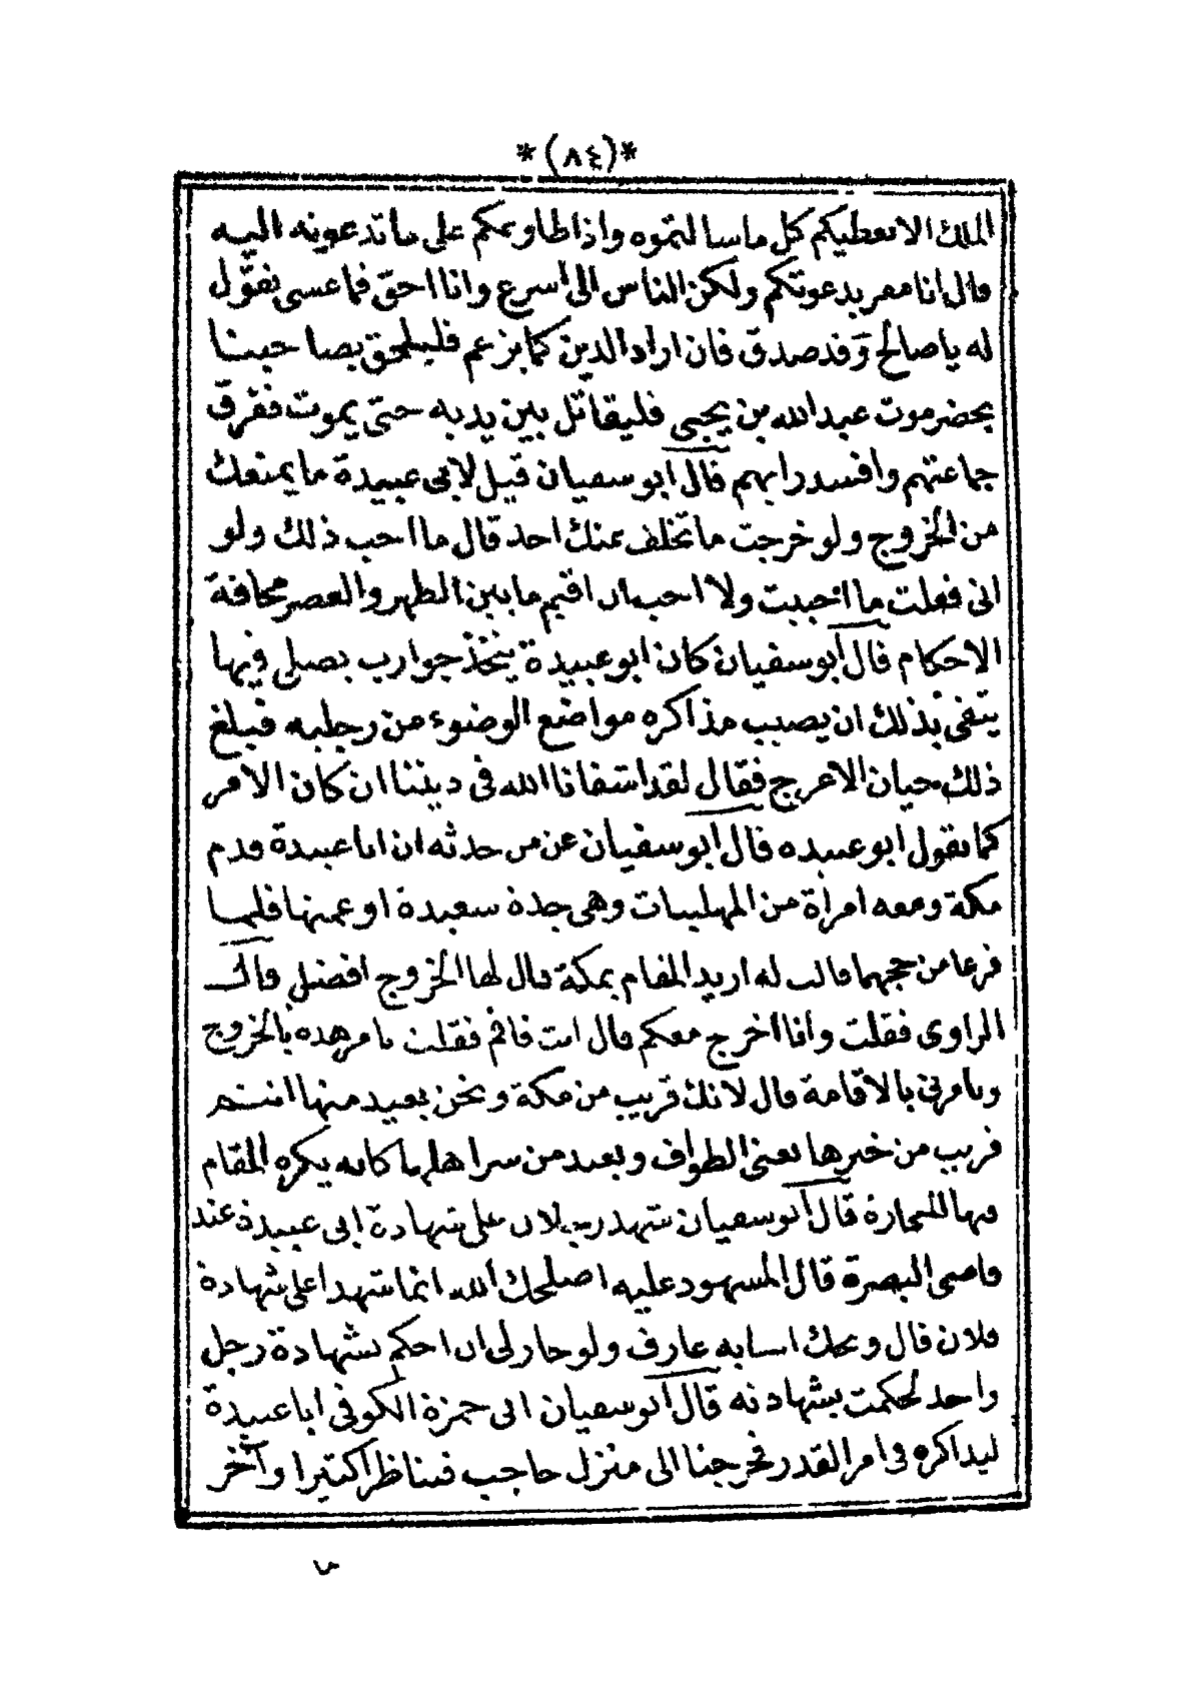 *(٨٤)*
الملك الا يعطيكم كل ما سالتموه واذا طاوعكم على ما تدعونه اليه
قال انا معر بدعوتكم ولكن الناس الى اسرع وانا احق فما عسى نقول
له يا صالح وقد صدق فان اراد الدين كما يزعم فليلحق بصاحبنا
بحضرموت عبد الله بن يحيى فليقاتل بين يديه حتى يموت ففرق
جماعتهم وافسد رايهم قال ابو سفيان قيل لابى عبيدة ما يمنعك
من الخروج ولو خرجت ما تخلف عنك احد قال ما احب ذلك ولو
انى فعلت ما احببت ولا احب ان اقيم ما بين الظهر والعصر مخافة
الاحكام قال ابو سفيان كان ابو عبيدة يتخذ جوارب يصلى فيها
يتقى بذلك ان يصيب مذاكره مواضع الوضوء من رجليه فبلغ
ذلك حيان الاعرج فقال لقد اشفانا الله فى ديننا ان كان الامر
كما يقول ابو عبيده قال ابو سفيان عن من حدثه ان ابا عبيدة قدم
مكة ومعه امرأة من المهلبيات وهى جدة سعيدة او عمتها فلما
فرغا من حجهما قالت له اريد المقام بمكة قال لها الخروج افضل قال
الراوى فقلت وأنا اخرج معكم قال انت فاقم فقلت تامر هده بالخروج
وتامرنى بالاقامة قال لانك قريب من مكة ونحن بعيد منها انتم
قريب من خيرها يعنى الطواف وبعيد من سر اهلها كانه يكره المقام
فيها للتجارة قال ابو سفيان شهد رجلان على شهادة ابى عبيدة عند
قاضى البصرة قال المشهود عليه اصلحك الله انما شهدا على شهادة
فلان قال ويحك انا به عارف ولو جاز لى ان احكم بشهادة رجل
واحد لحكمت بشهادته قال ابو سفيان اتى حمزة الكوفى ابا عبيدة
ليذاكره فى امر القدر فخرجنا الى منزل حاجب فتناظرا كثيرا وآخر